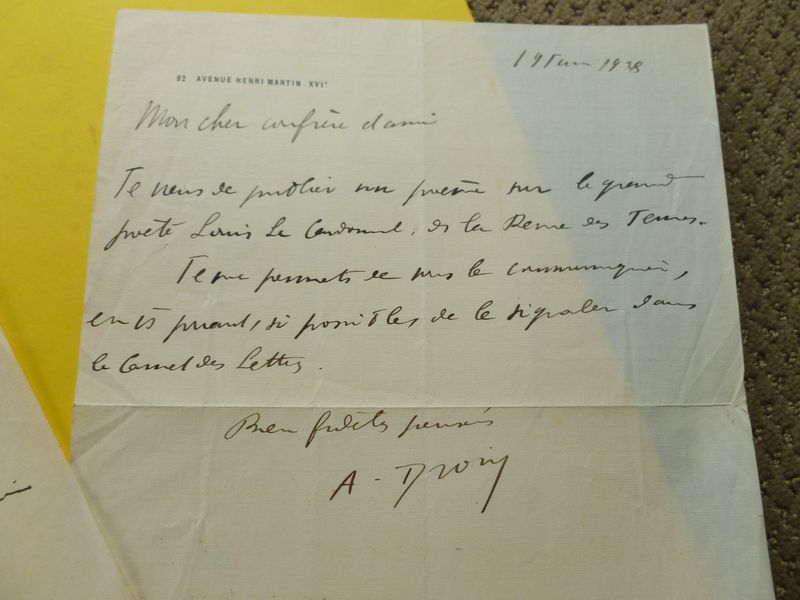 92 AVENUE HENRI MARTIN. XVIe
19 Juin 1938
Mon cher confrère et ami
Je viens de publier un poème sur le grand
poète Louis Le Cardonnel, ds la Revue des Jeunes.
Je me permets de vous le communiquer,
en vs priant, si possible, de le signaler dans
le Carnet des Lettres.
Bien fidèles pensées
A. Droin